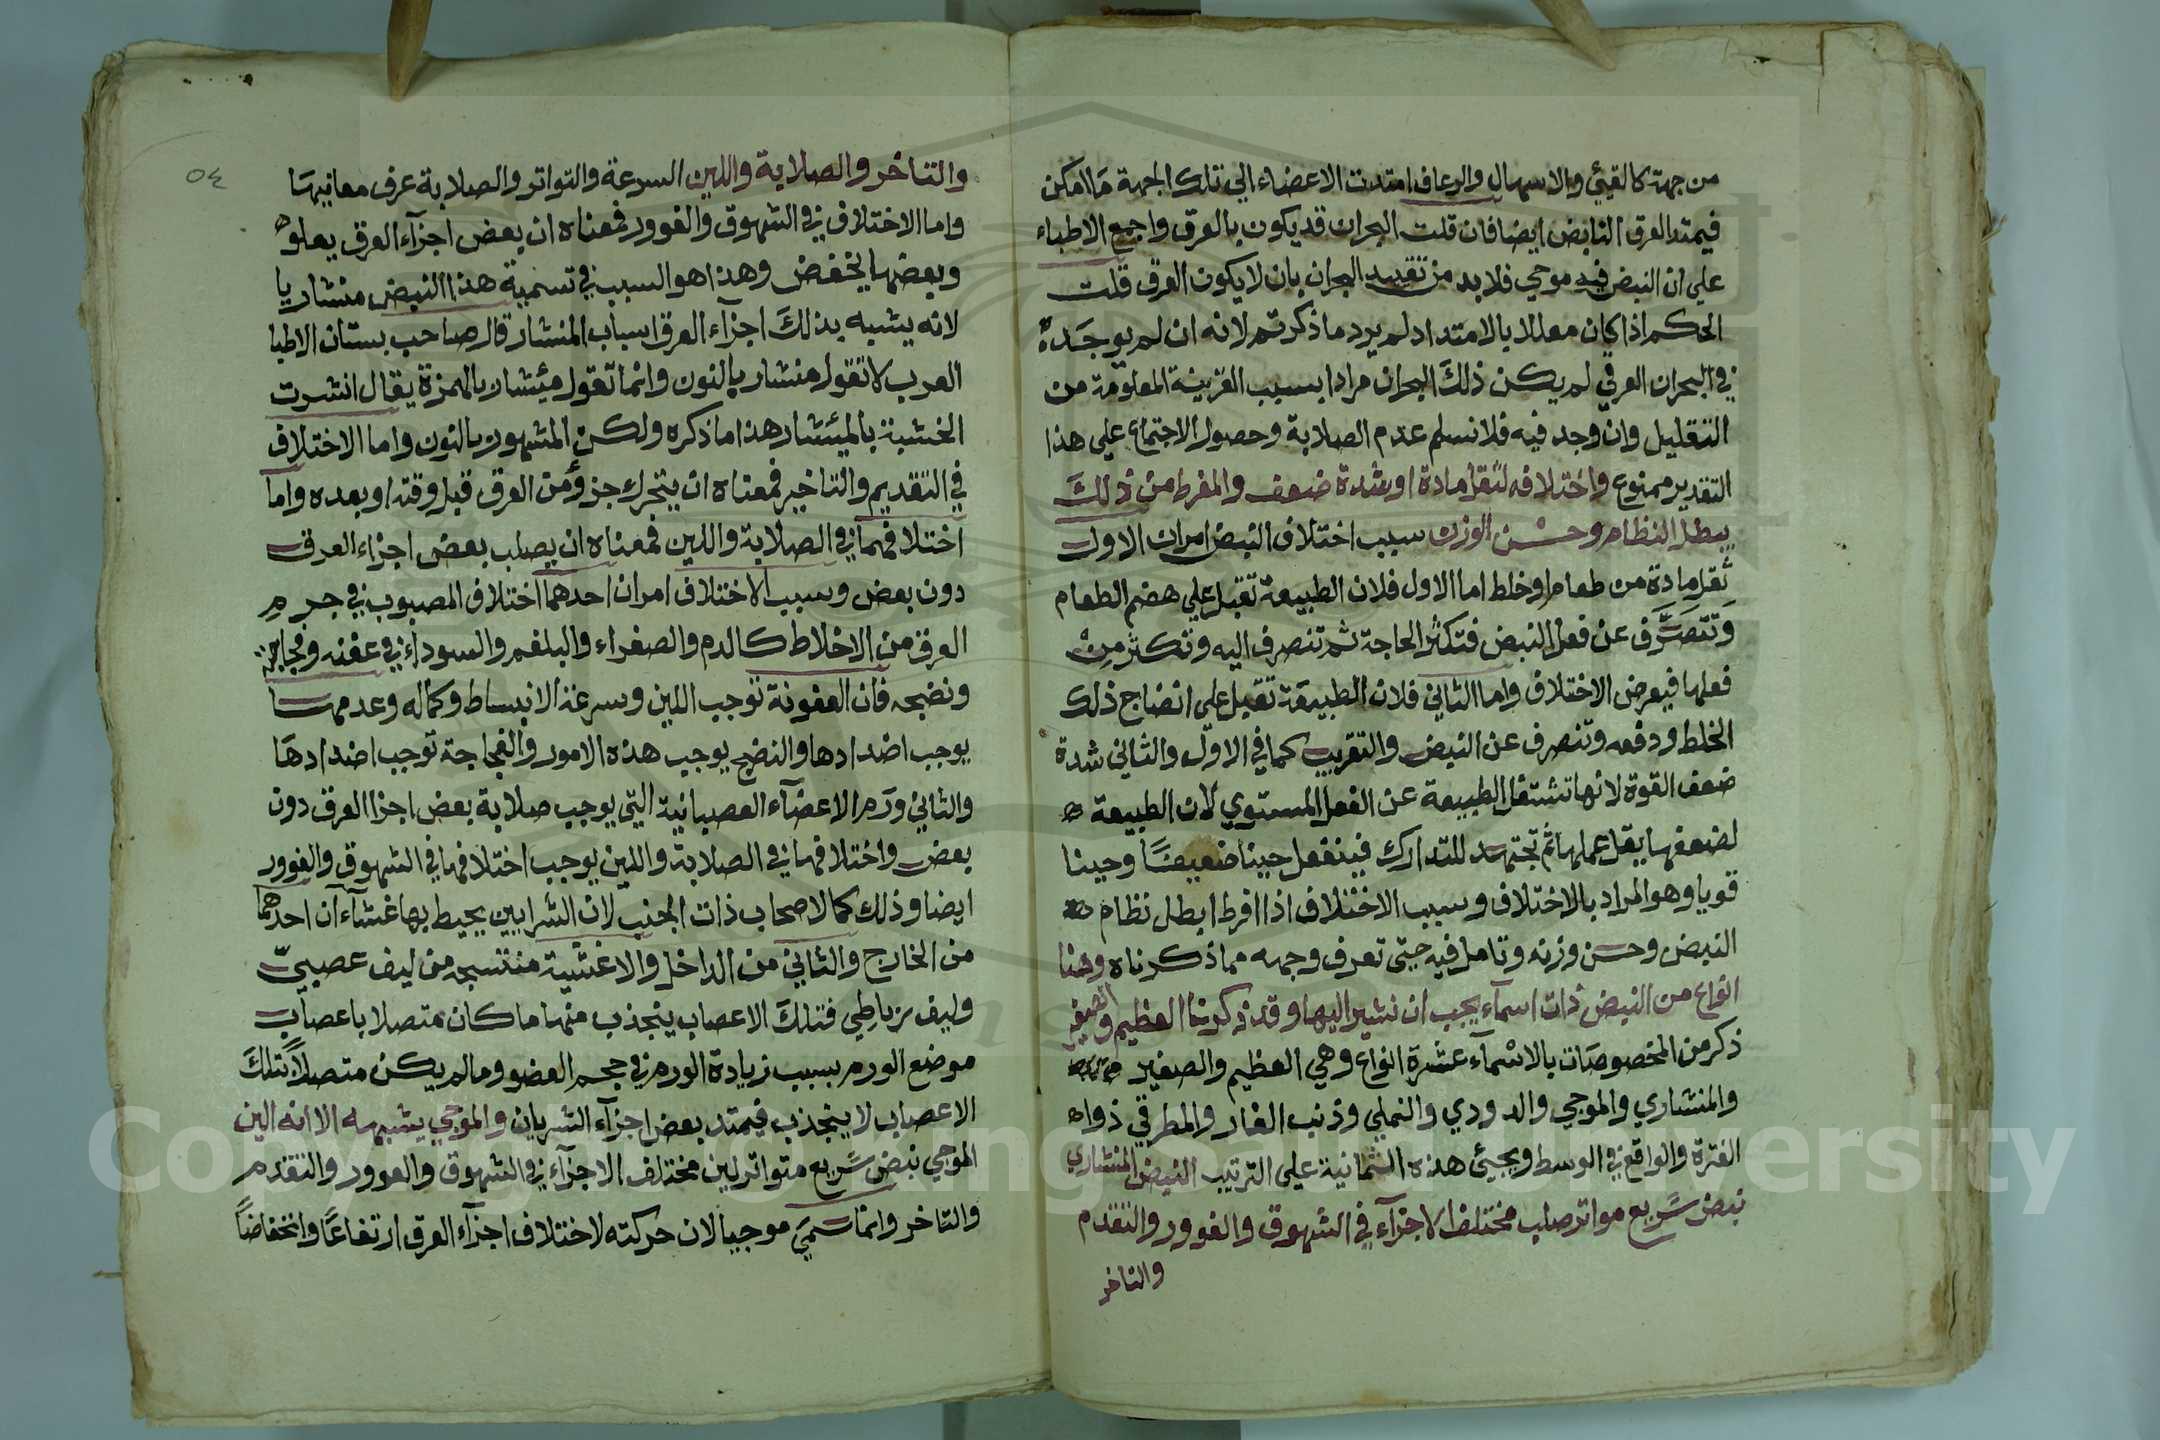 من جهة كالقيئ والاسهال والرعاف امتدت الاعضاء الي تلك الجهة ما امكن
فيمتد العرق النابض ايضا فان قلت البحران قد يكون بالعرق واجمع الاطباء
علي ان النبض فيه موجي فلا بد من تقييد البحران بان لا يكون العرق قلت
الحكم اذا كان معللا بالامتداد لم يرد ما ذكرتم لانه ان لم يوجد
في البحران العرقي لم يكن ذلك البحران مرادا بسبب القرينة المعلومة من
التعليل وان وجد فيه فلا نسلم عدم الصلابة وحصول الاجتماع علي هذا
التقدير ممنوع واختلافه لثقل مادة او شدة ضعف والمفرط من ذلك
يبطل النظام وحسن الوزن سبب اختلاف النبض امران الاول
ثقل مادة من طعام او خلط اما الاول فلان الطبيعة تقبل علي هضم الطعام
وتتصرف عن فعل النبض فتكثر الحاجة ثم تنصرف اليه وتكثر من
فعلها فيعرض الاختلاف واما الثاني فلان الطبيعة تقبل علي انضاج ذلك
الخلط ودفعه وتنصرف عن النبض والتقريب كما في الاول والثاني شدة
ضعف القوة لانها تشتغل الطبيعة عن الفعل المستوي لان الطبيعة
لضعفها يقل عملها ثم تجتهد للتدارك فينفعل حينا ضعيفا وحينا
قويا وهو المراد بالاختلاف وسبب الاختلاف اذا افرط ابطل نظام
النبض وحسن وزنه وتامل فيه حتى تعرف وجهه مما ذكرناه وهنا
انواع من النبض ذات اسماء يجب ان نشير اليها وقد ذكرنا العظيم والصغير
ذكر من المخصوصات بالاسماء عشرة انواع وهي العظيم والصغير
والمنشاري والموجي والدودي والنملي وذنب الفار والمطرقي ذو
الفترة والواقع في الوسط ويجيئ هذه الثمانية علي الترتيب النبض المنشاري
نبض سريع مواتر صلب مختلف الاجزاء في الشهوق والغوور والتقدم
والتاخر
٥٤
والتاخر والصلابة واللين السرعة والتواتر والصلابة عرف معانيها
واما الاختلاف في الشهوق والغوور فمعناه ان بعض اجزاء العرق يعلو
وبعضها يخفض وهذا هو السبب في تسمية هذا النبض منشاريا
لانه يشبه بذلك اجزاء العرق اسباب المنشار قال صاحب بستان الاطبا
العرب لا تقول منشار بالنون وانما تقول مئشار بالهمزة يقال انشرت
الخشبة بالمئشار هذا ما ذكره ولكن المشهور بالنون واما الاختلاف
في التقديم والتاخير فمعناه ان يتحرك جزؤ من العرق قبل وقته او بعده واما
اختلافهما في الصلابة واللين فمعناه ان يصلب بعض اجزاء العرق
دون بعض وسبب الاختلاف امران احدهما اختلاف المصبوب في جرم
العرق من الاخلاط كالدم والصفراء والبلغم والسوداء في عفنه وفجاجته
ونضجه فان العفونة توجب اللين وسرعة الانبساط وكماله وعدمها
يوجب اضدادها والنضج يوجب هذه الامور والفجاجة توجب اضدادها
والثاني ورم الاعضاء العصبانية التي يوجب صلابة بعض اجزا العرق دون
بعض واختلافها في الصلابة واللين يوجب اختلافها في الشهوق والغوور
ايضا وذلك كما لاصحاب ذات الجنب لان الشرايين يحيط بها غشاآن احدهما
من الخارج والثاني من الداخل والاغشية منتسجه من ليف عصبي
وليف رباطي فتلك الاعصاب ينجذب منها ما كان متصلا باعصاب
موضع الورم بسبب زيادة الورم في حجم العضو وما لم يكن متصلا بتلك
الاعصاب لا ينجذب فيمتد بعض اجزاء الشريان والموجي يشبهه الا انه الين
الموجي نبض سريع متواتر لين مختلف الاجزاء في الشهوق والغوور والتقدم
والتاخر وانما سمي موجيا لان حركته لاختلاف اجزاء العرق ارتفاعا وانخفاضا
Copyright © King Saud University